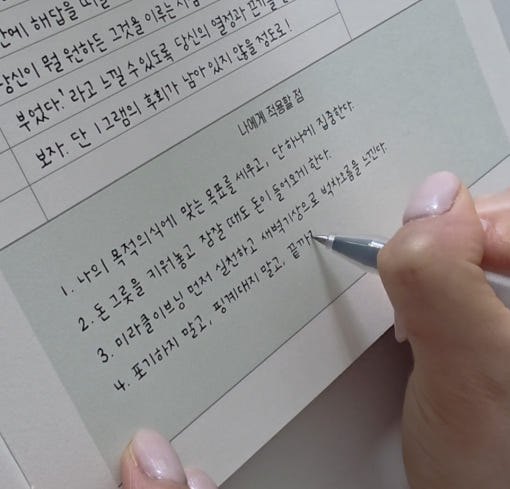 안에 해답을
당신이 뭘 원하든 그것을 이루는
부었다.'라고 느낄 수 있도록 당신의 열정과 끈기를
보자. 단 1그램의 후회가 남아 있지 않을 정도로!
나에게 적용할 점
1. 나의 목적의식에 맞는 목표를 세우고, 단 하나에 집중한다.
2. 돈 그릇을 키워놓고 잠잘 때도 돈이 들어오게 한다.
3. 미라클이브닝 먼저 실천하고 새벽기상으로 벅차오름을 느낀다.
4. 포기하지 말고, 핑계대지 말고, 끝까